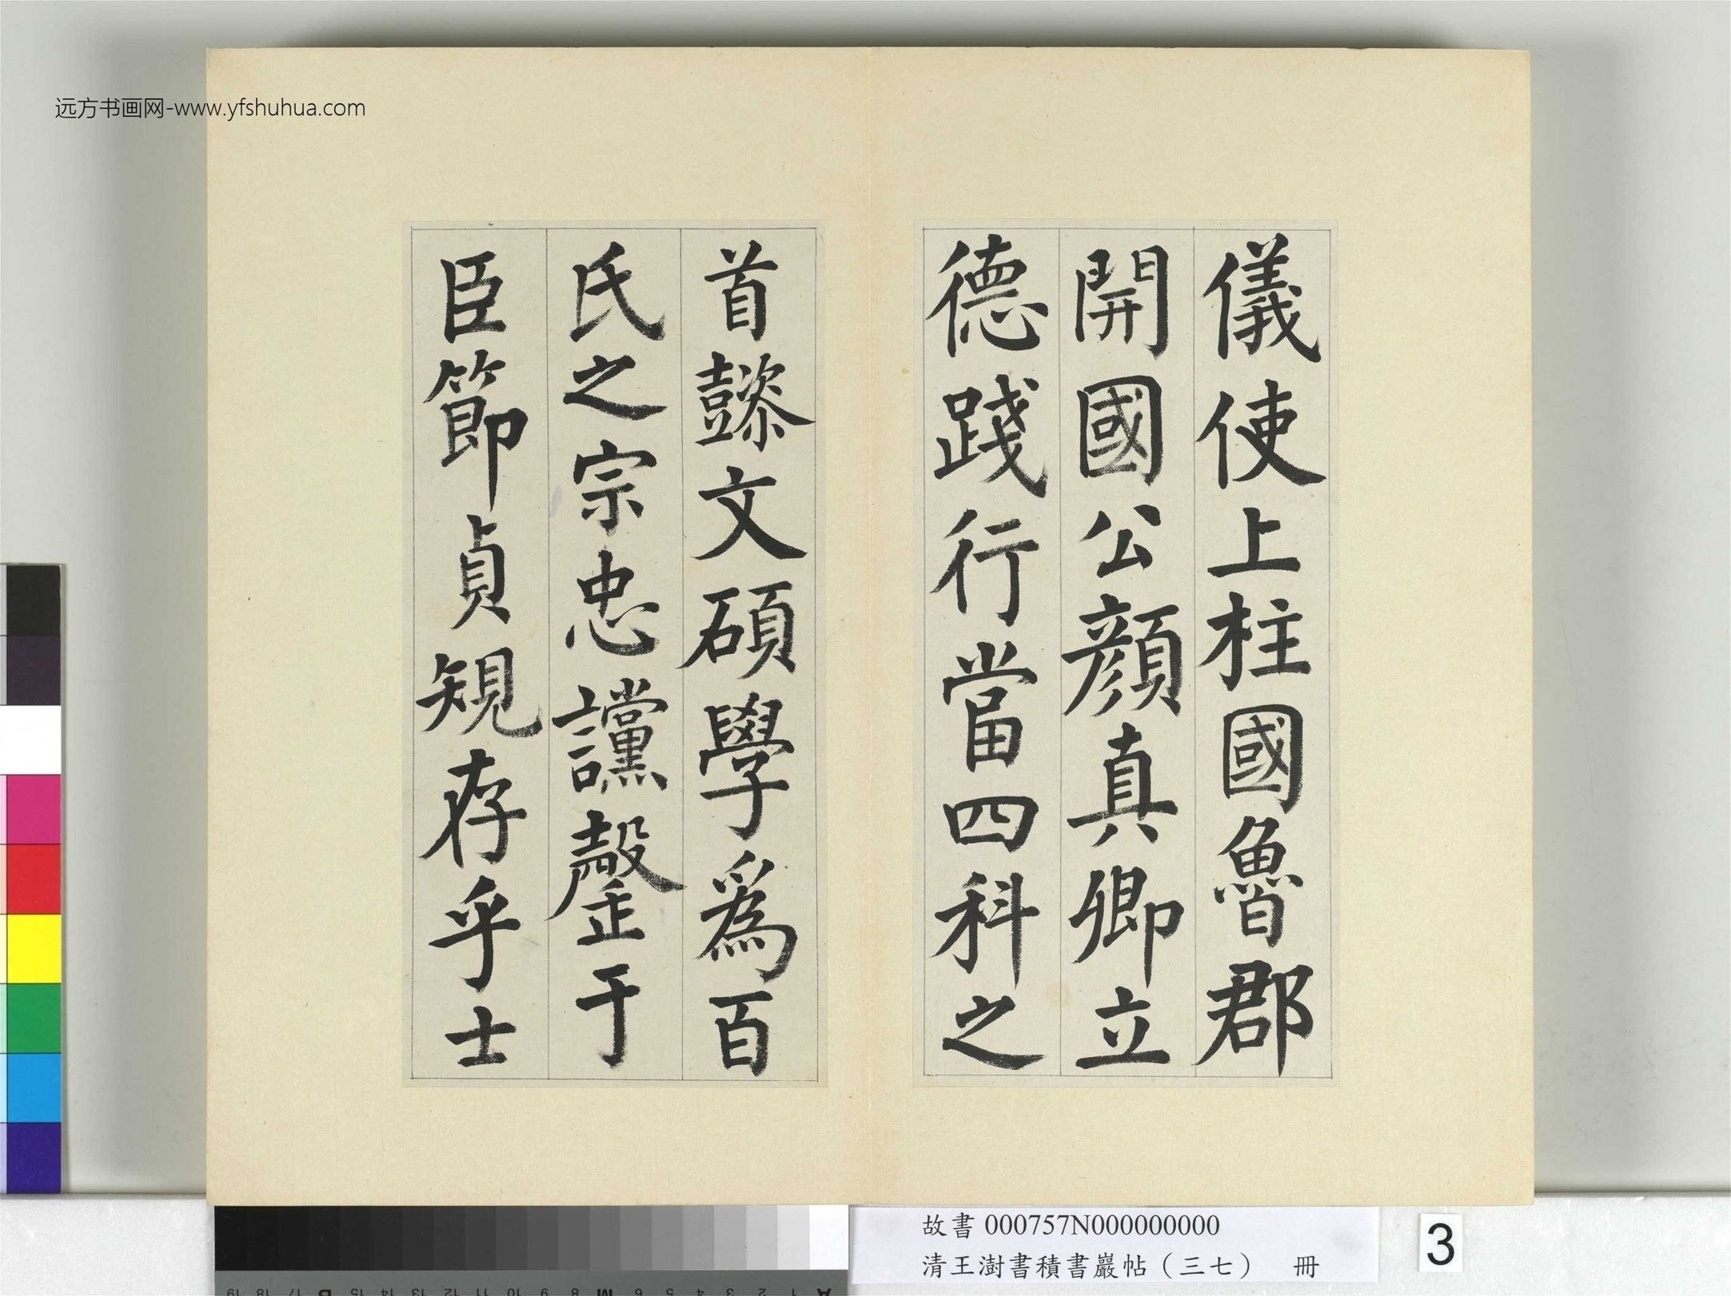 远方书画网-www.yfshuhua.com
儀使上柱國魯郡
開國公顏真卿立
德踐行當四科之
首懿文碩學為百
氏之宗忠讜罄于
臣節貞規存乎士
故書 000757N000000000
清王澍書積書巖帖（三七） 冊
3